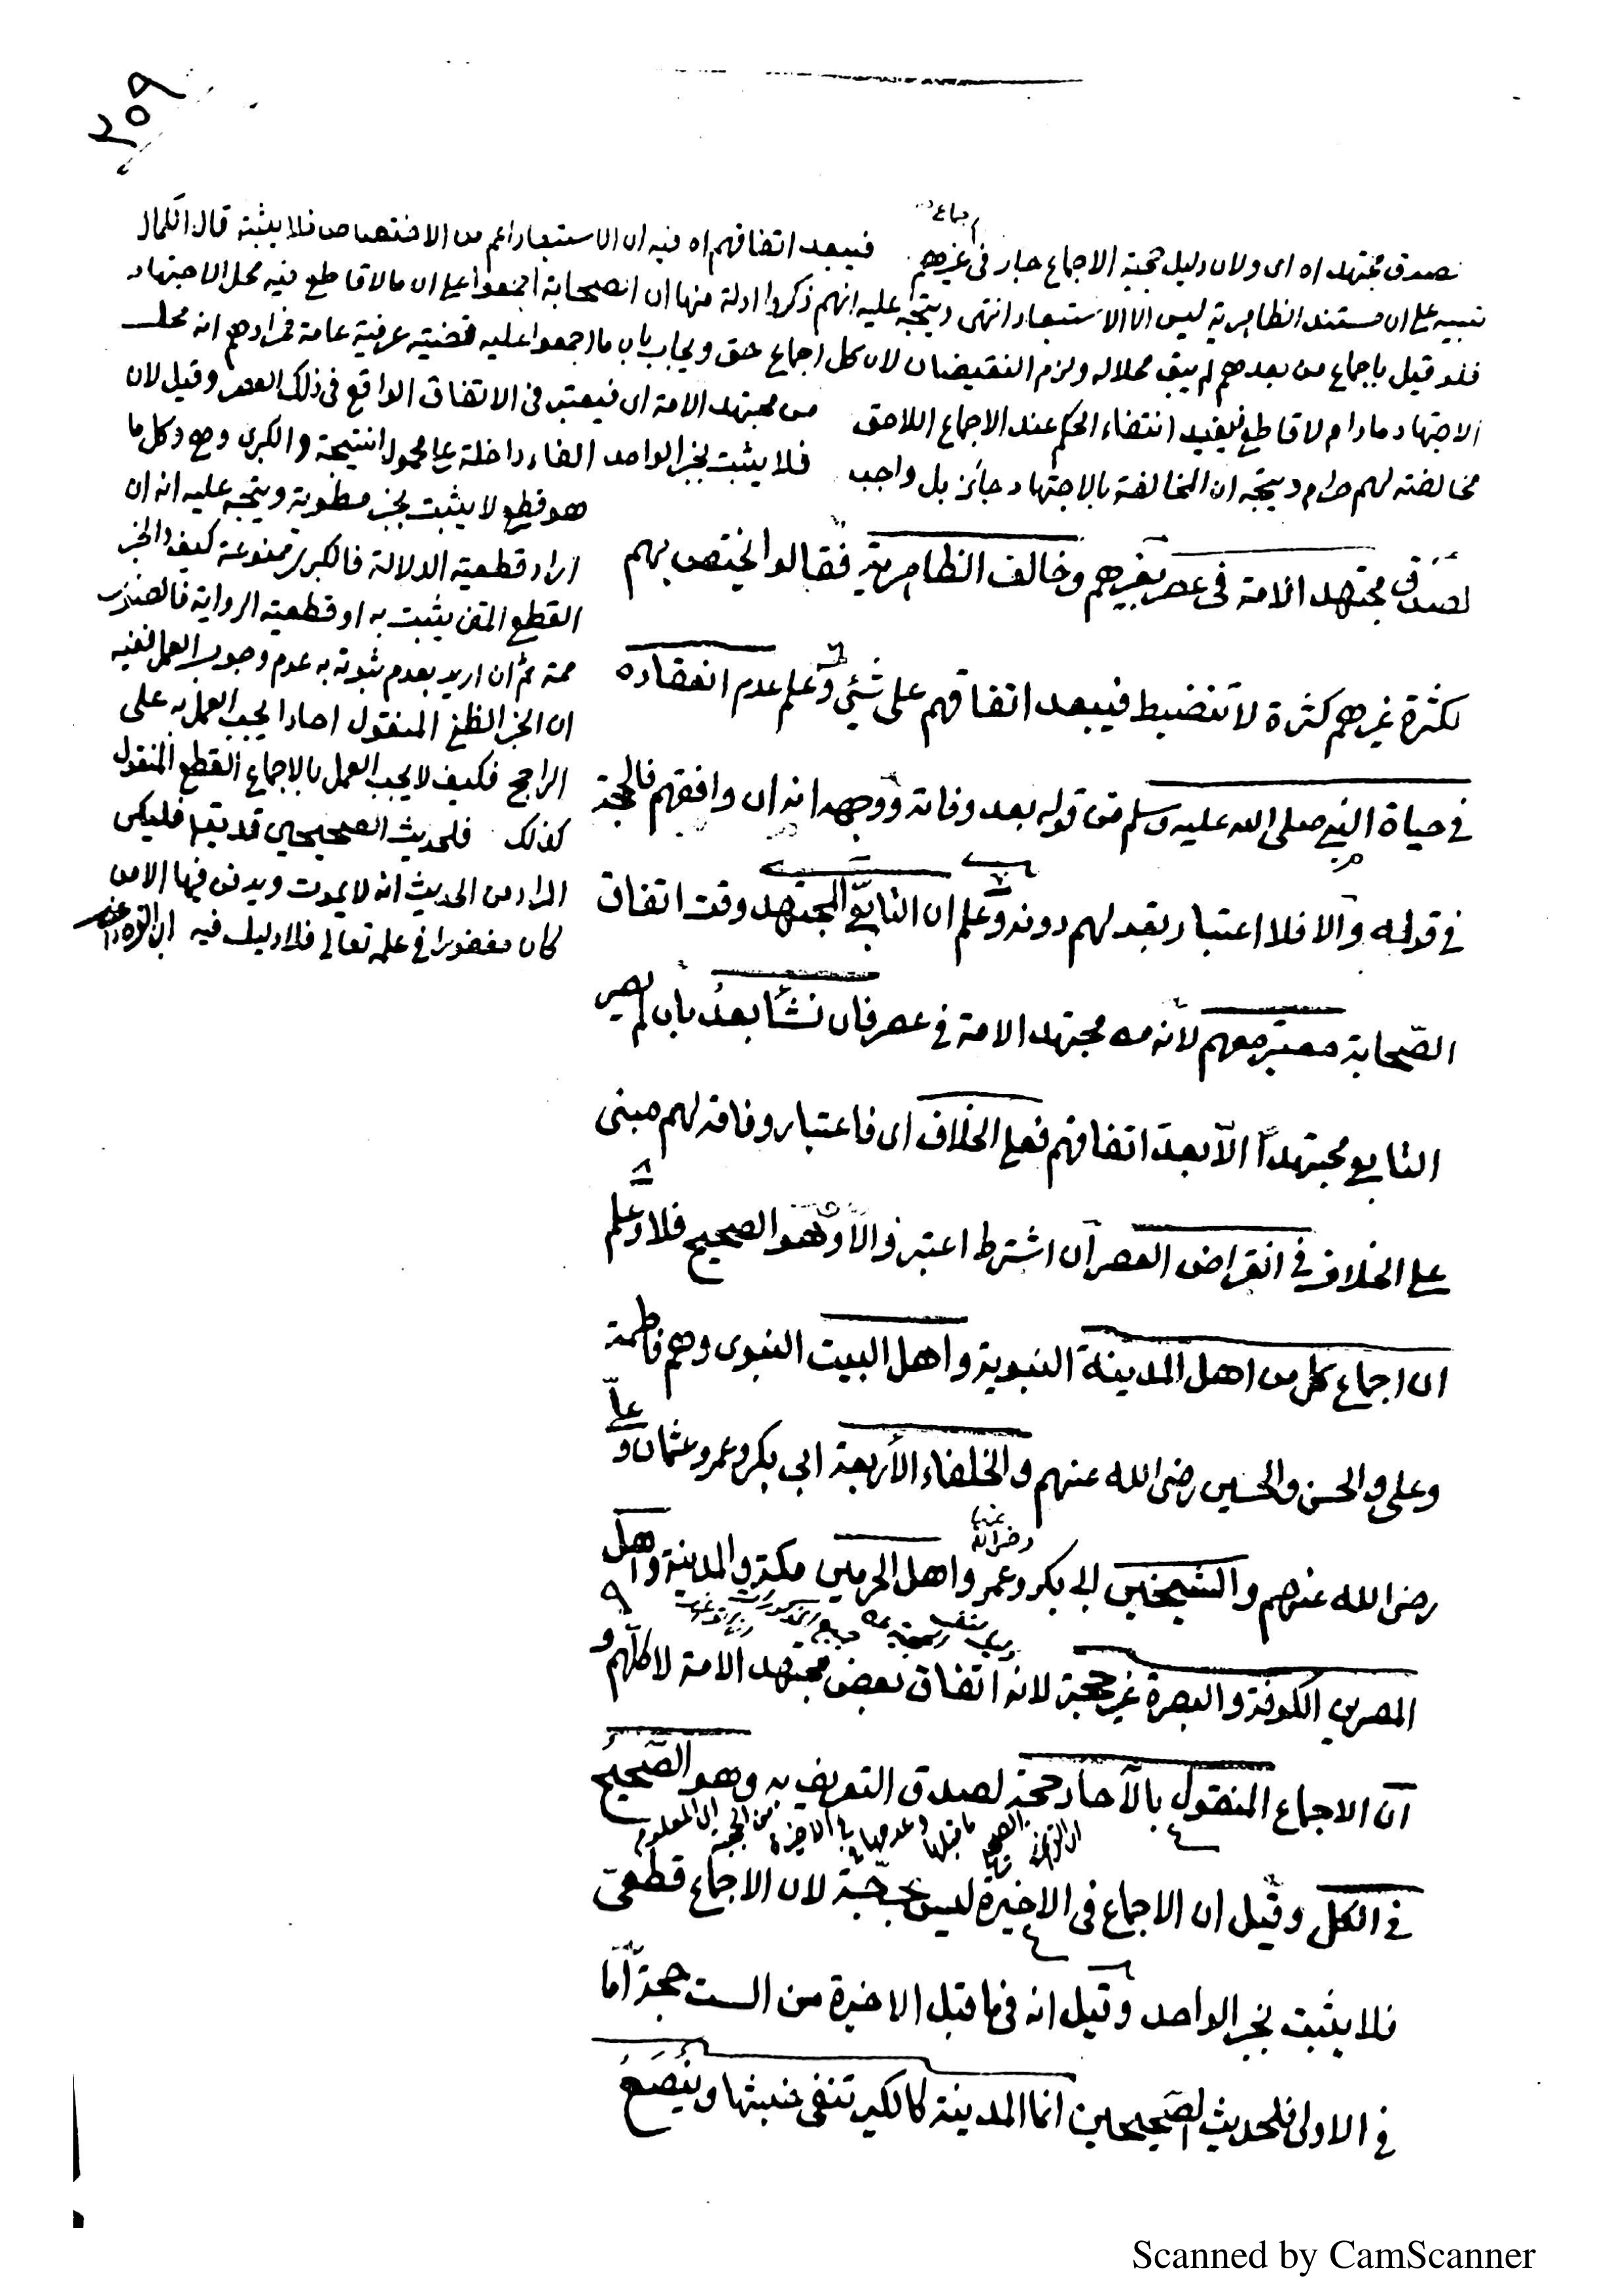 ٢٥٩
اجماع
تصدق مجتهد اه اى ولان دليل حجية الاجماع جار فى غيرهم فيبعد اتفاقهم اه فيه ان الاستبعاد اعم من الاختصاص فلا يثبته قال الكمال
تنبيه على ان مستند الظاهرية ليس الا الاستبعاد انتهى ويتجه عليه انهم ذكروا ادلة منها ان الصحابة اجمعوا على ان ما لا قاطع فيه محل الاجتهاد
فلو قيل باجماع من بعدهم لم يبق محلا له ولزم النقيضان لان كل اجماع حق ويجاب بان ما اجمعوا عليه قضية عرفية عامة فمرادهم انه محل
الاجتهاد مادام لا قاطع فيفيد انتفاء الحكم عند الاجماع اللاحق من مجتهد الامة اى فيعتبر فى الاتفاق الواقع فى ذلك العصر وقيل لان
مخالفته لهم حرام ويتجه ان المخالفة بالاجتهاد جائز بل واجب فلا يثبت بخبر الواحد الفاء داخلة على محمول النتيجة والكبرى وهو وكل ما
هو قطعى لا يثبت بخبر مطوية ويتجه عليه انه ان
اراد قطعية الدلالة فالكبرى ممنوعة كيف والخبر
القطعى المتن يثبت به او قطعية الرواية فالصغرى
ممنوعة ثم ان اريد بعدم ثبوته به عدم وجوب العمل ففيه
ان الخبر الظنى المنقول احادا يجب العمل به على
الراجح فكيف لا يجب العمل بالاجماع القطعى المنقول
كذلك فلحديث الصحيحين قد يقال فليكن
المراد من الحديث انه لا يموت ويدفن فيها الا من
كان مغفورا فى علمه تعالى فلا دليل فيه ابن القره داغى
لصدق مجتهد الامة فى عصر بغيرهم وخالف الظاهرية فقالوا يختص بهم
لكثرة غيرهم كثرة لا تنضبط فيبعد اتفاقهم على شئ وعلم عدم انعقاده
فى حياة النبى صلى الله عليه وسلم من قوله بعد وفاته ووجهه انه ان وافقهم فالحجة
فى قوله والا فلا اعتبار بقولهم دونه وعلم ان التابعى المجتهد وقت اتفاق
الصحابة معتبر معهم لانه من مجتهد الامة فى عصر فان نشأ بعد بان لم يصر
التابعى مجتهداً الا بعد اتفاقهم فعلى الخلاف اى فاعتبار وفاقه لهم مبنى
على الخلاف فى انقراض العصر ان اشترط اعتبر والا وهو الصحيح فلا وعلم
ان اجماع كل من اهل المدينة النبوية واهل البيت النبوى وهم فاطمة
وعلى والحسن والحسين رضى الله عنهم والخلفاء الأربعة ابى بكر وعمر وعثمان وعلىّ
رضى الله عنهما
رضى الله عنهم والشيخين ابى بكر وعمر واهل الحرمين مكة والمدينة واهل
المصرين الكوفة والبصرة غير حجة لانه اتفاق بعض مجتهد الامة لا كلّهم و
ان الاجماع المنقول بالآحاد حجة لصدق التعريف به وهو الصّحيح
فى الكل وقيل ان الاجماع فى الاخيرة ليس بحجّة لان الاجماع قطعىّ
فلا يثبت بخبر الواحد وقيل انه فى ما قبل الاخيرة من الست حجة امّا
فى الاولى فلحديث الصّحيحين انما المدينة كالكير تنفى خبثها وينصع
Scanned by CamScanner